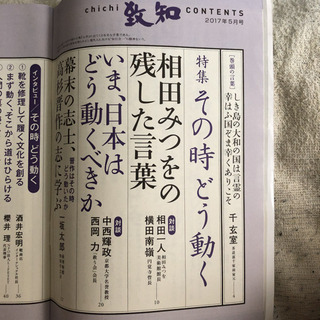 chichi 致知 CONTENTS
2017年5月号
[巻頭の言葉]
しき島の大和の国は言霊の
幸はふ国ぞま幸くありこそ
千 玄室
特集 その時どう動く
相田みつをの
残した言葉
対談
相田一人
相田みつを
美術館館長
横田南嶺
円覚寺管長
18
いま、日本は
どう動くべきか
対談
中西輝政
京都大学名誉教授
西岡 力
20
幕末の志士、
どう動いたか
一坂太郎
インタビュー その時、どう動く
①靴を修理して履く文化を創る
酒井宏明
②まず動く、そこから道はひらける
櫻井 理
40
36